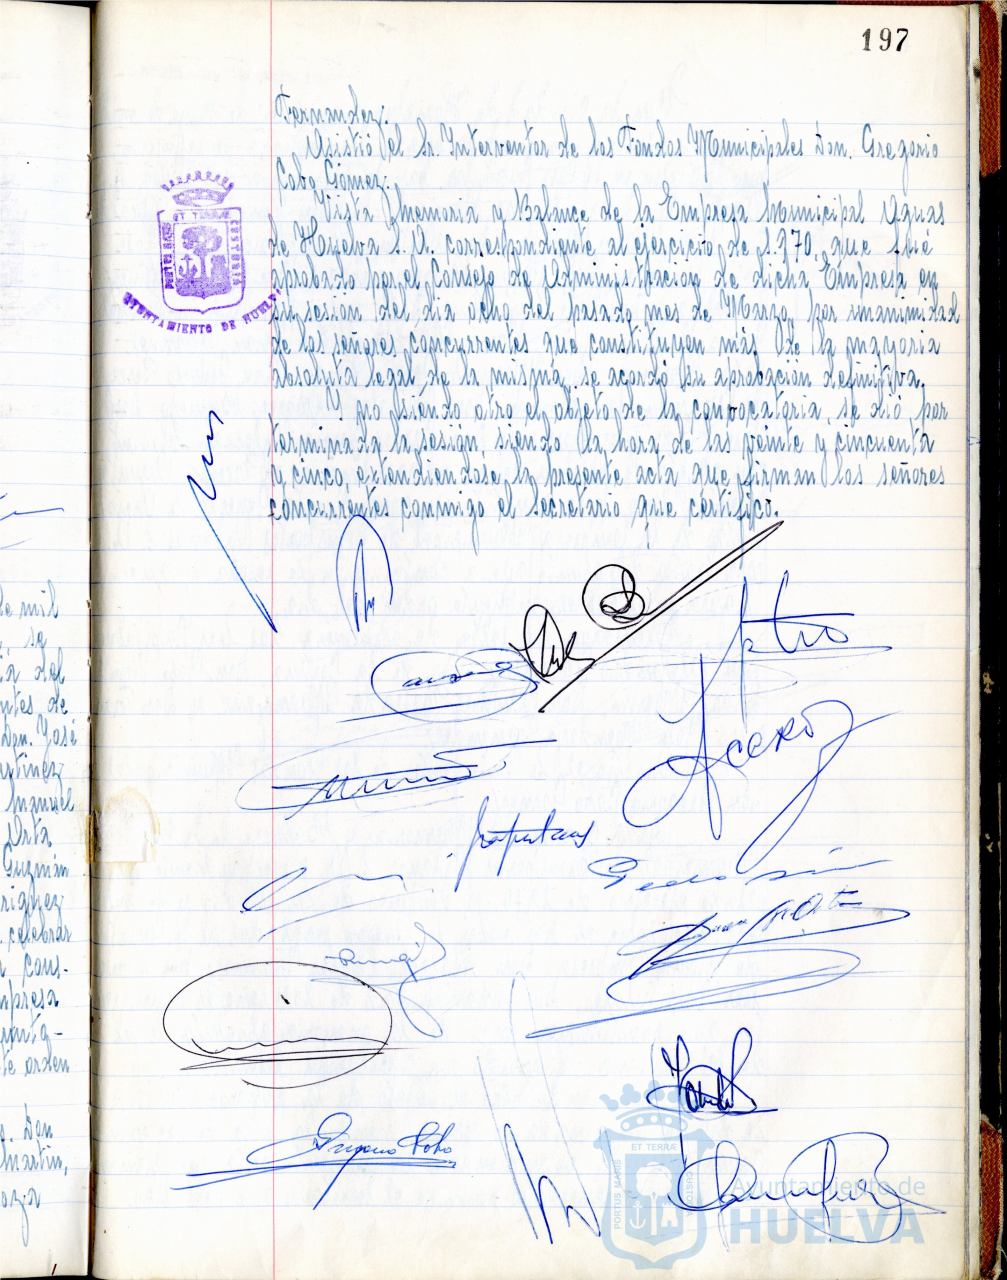 197
Fernandez.
Asistió el Sr. Interventor de los Fondos Municipales Don. Gregorio
Cobo Gómez.
Vista Memoria y Balance de la Empresa Municipal Aguas
de Huelva S.A. correspondiente al ejercicio de 1.970, que fué
aprobado por el Consejo de Administración de dicha Empresa en
su sesión del dia ocho del pasado mes de Marzo, por unanimidad
de los señores concurrentes que constituyen más de la mayoria
absoluta legal de la misma, se acordó su aprobación definitiva.
Y no siendo otro el objeto de la convocatoria, se dió por
terminada la sesión, siendo la hora de las veinte y cincuenta
y cinco, extendiendose la presente acta que firman los señores
concurrentes conmigo el Secretario que certifico.
PORTUS MARIS ET TERRAE CUSTODIA
AYUNTAMIENTO DE HUELVA
de mil
se
a del
ntes de
Don. José
artinez
Manuel
Orta
Guzmán
riguez
celebrar
a cons-
mpresa
unta-
te orden
Don
Martin,
oza
Acero
Pedro
Gregorio Cobo
PORTUS MARIS ET TERRA CUSTODIA
Ayuntamiento de
HUELVA